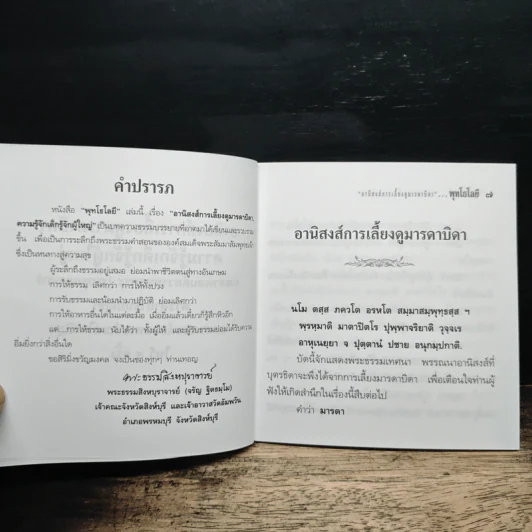 คำปรารภ
หนังสือ "พุทโธโลยี" เล่มนี้ เรื่อง "อานิสงส์การเลี้ยงดูมารดาบิดา,
ความรู้จักเด็กรู้จักผู้ใหญ่" เป็นบทความธรรมบรรยายที่อาตมาได้เขียนและรวบรวม
ขึ้น เพื่อเป็นการระลึกถึงพระธรรมคำสอนขององค์สมเด็จพระสัมมาสัมพุทธเจ้า
ซึ่งเป็นหนทางนำมาสู่ความสุข
ผู้ระลึกถึงธรรมอยู่เสมอ ย่อมนำพาชีวิตตนสู่ทางอันเกษม
การให้ธรรม เลิศกว่า การให้ทั้งปวง
การรับธรรมและน้อมนำมาปฏิบัติ ย่อมเลิศกว่า
การให้อาหารอื่นใดในแต่ละมื้อ เมื่ออิ่มแล้วเดี๋ยวก็รู้สึกหิวอีก
แต่...การให้ธรรม นับได้ว่า ทั้งผู้ให้ และผู้รับธรรมย่อมได้รับความ
อิ่มยิ่งกว่าสิ่งอื่นใด
ขอสิริมิ่งขวัญมงคล จงเป็นของทุกๆ ท่านเทอญ
พระธรรมสิงหบุราจารย์
พระธรรมสิงหบุราจารย์ (จรัญ ฐิตธมฺโม)
เจ้าคณะจังหวัดสิงห์บุรี และเจ้าอาวาสวัดอัมพวัน
อำเภอพรหมบุรี จังหวัดสิงห์บุรี
"อานิสงส์การเลี้ยงดูมารดาบิดา"...พุทโธโลยี ๗
อานิสงส์การเลี้ยงดูมารดาบิดา
นโม ตสฺส ภควโต อรหโต สมฺมาสมฺพุทฺธสฺส ฯ
พฺรหฺมาติ มาตาปิตโร ปุพฺพาจริยาติ วุจฺจเร
อาหุเนยฺยา จ ปุตฺตานํ ปชาย อนุกมฺปกาติ.
บัดนี้จักแสดงพระธรรมเทศนา พรรณนาอานิสงส์ที่
บุตรธิดาจะพึงได้จากการเลี้ยงมารดาบิดา เพื่อเตือนใจท่านผู้
ฟังให้เกิดสำนึกในเรื่องนี้สืบต่อไป
คำว่า มารดา